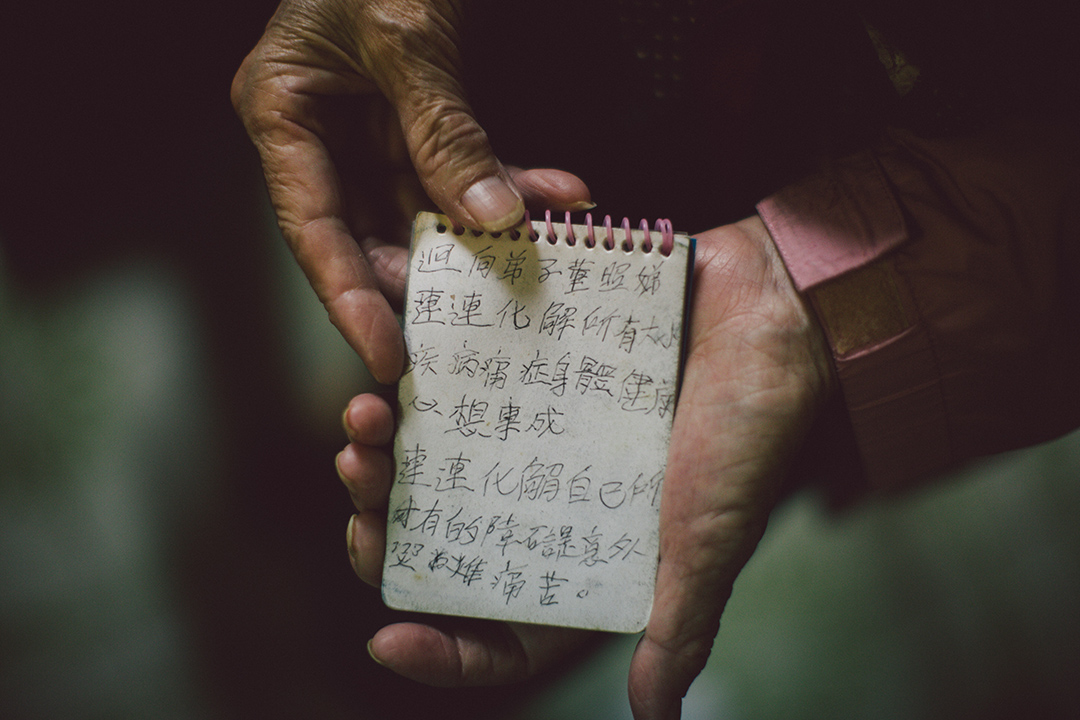 迴向弟子葉照娣
連連化解所有大小
疾病痛症身體健康
心想事成
連連化解自己所
有的障碍意外
難痛苦。